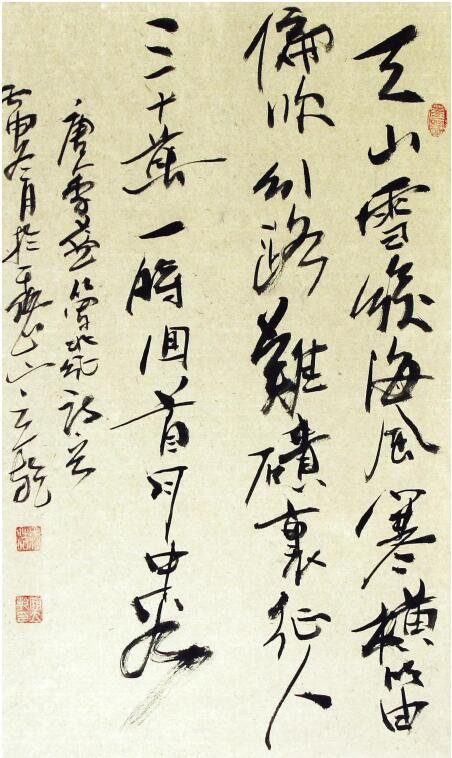 天山雪後海風寒橫笛
偏吹行路難磧裏征人
三十萬一時回首月中看
唐李益從軍北征詩
壬申冬月於山